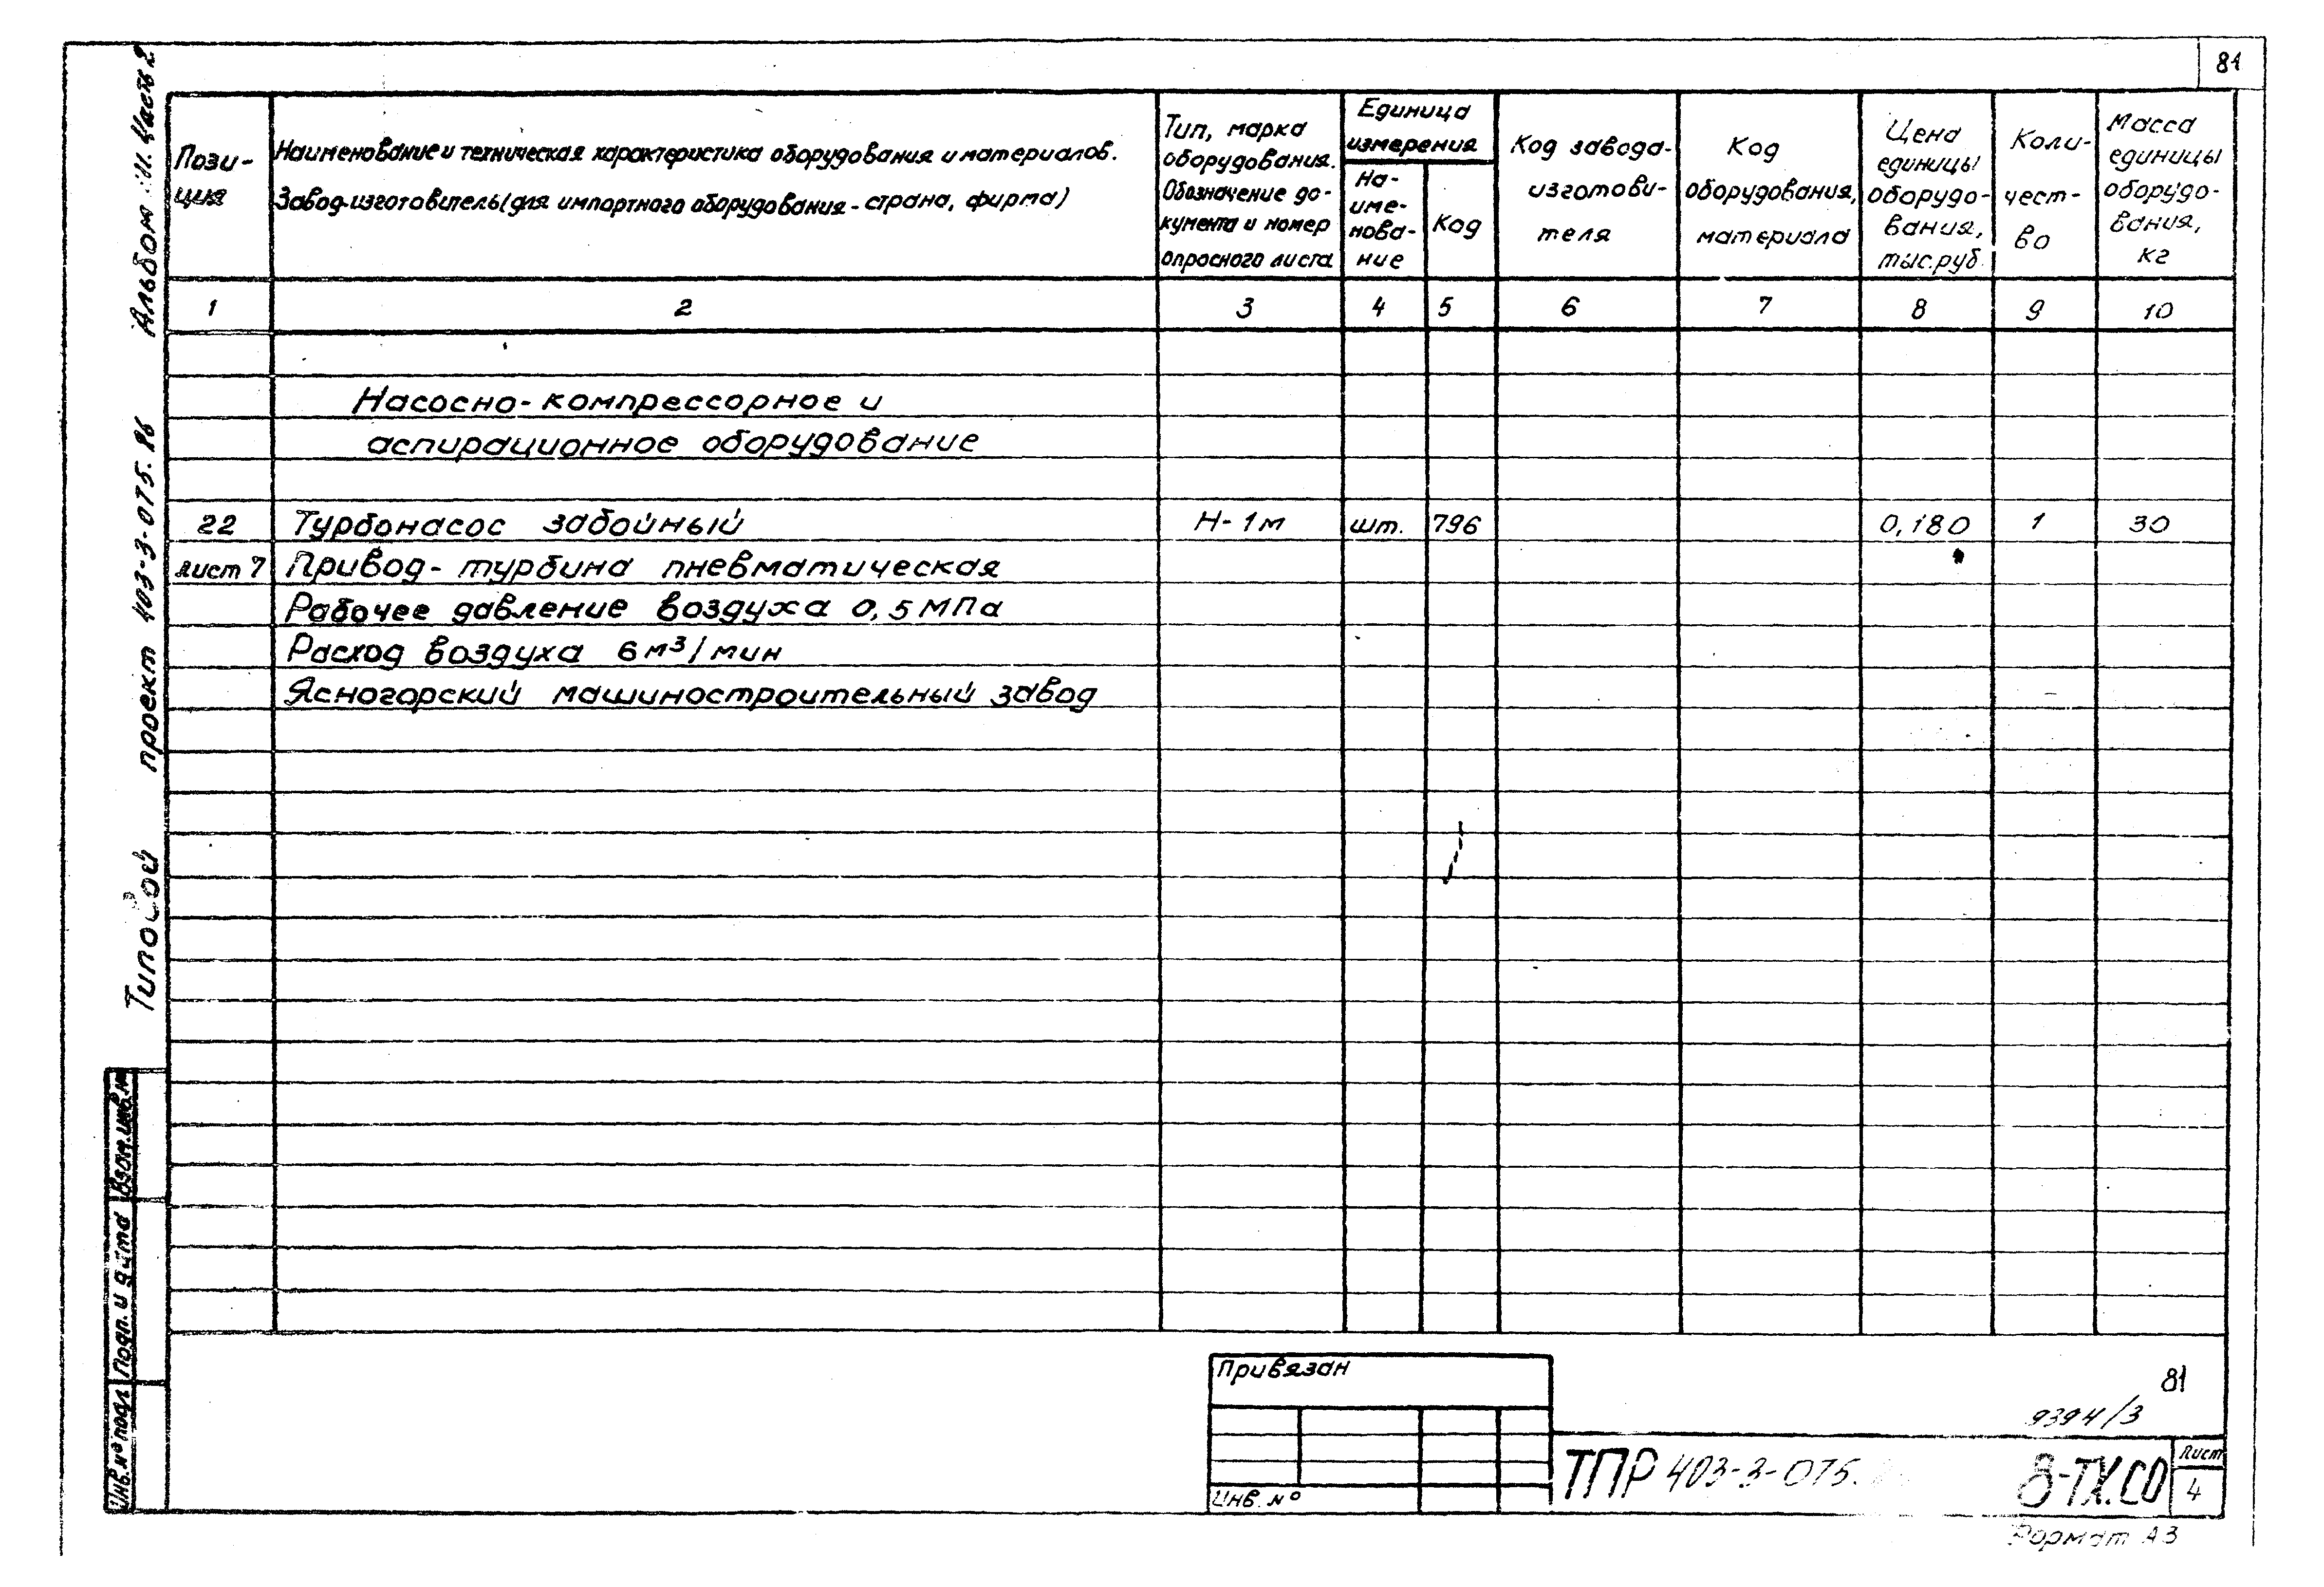 81
Пози-
ция
Наименование и техническая характеристика оборудования и материалов.
Завод-изготовитель (для импортного оборудования - страна, фирма)
Тип, марка
оборудования.
Обозначение до-
кумента и номер
опросного листа
Единица
измерения
На-
име-
нова-
ние
Код
Код завода-
изготови-
теля
Код
оборудования,
материала
Цена
единицы
оборудо-
вания,
тыс.руб.
Коли-
чест-
во
Масса
единицы
оборудо-
вания,
кг
1 2 3 4 5 6 7 8 9 10
Насосно-компрессорное и
аспирационное оборудование
22 Турбонасос забойный Н-1м шт. 796 0,180 1 30
лист 7 Привод-турбина пневматическая
Рабочее давление воздуха 0,5 МПа
Расход воздуха 6 м³/мин
Ясногорский машиностроительный завод
Типовой проект 403-3-075.86 Альбом Часть 2
Взам.инв.№
Подп. и дата
Инв.№ подл
Привязан
Инв. №
81
9394/3
ТПР 403-3-075. 8-ТХ.СО
Лист
4
Формат А3